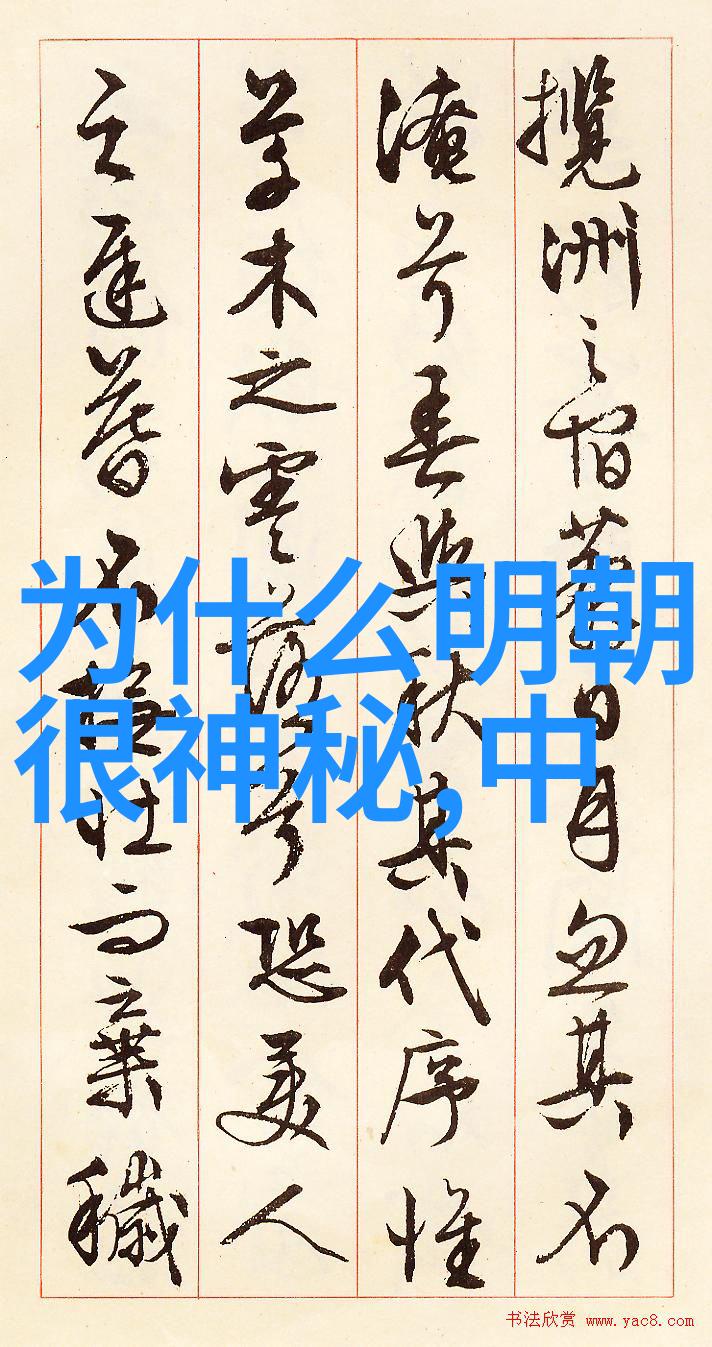 攬洲之宿莽日月忽其不
淹兮春與秋其代序惟
草木之零落兮恐美人
之遲暮不撫壯而棄穢
为什么明朝
很神秘,中
书法欣赏 www.yac8.com